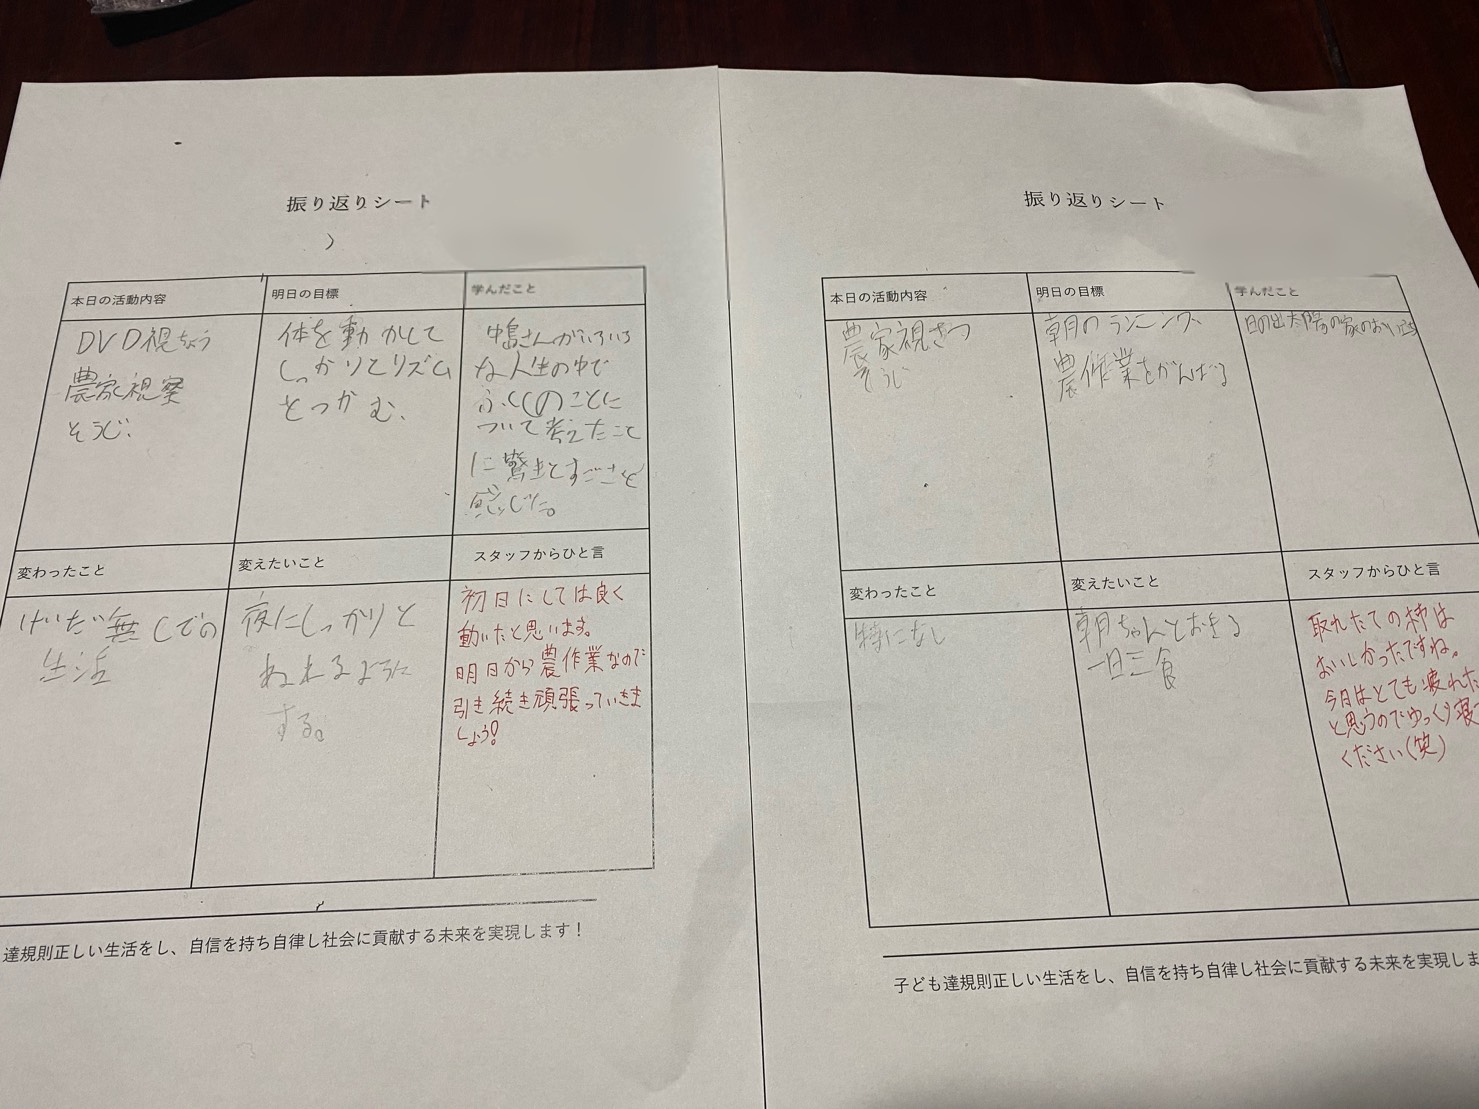 振り返りシート
本日の活動内容
明日の目標
学んだこと
DVD視ちょう
農家視察
そうじ.
体を動かして
しっかりとリズム
をつかむ、
中島さんがいろいろ
な人生の中で
ふくしのことに
ついて考えたこと
に驚きとすごさを
感じた。
変わったこと
変えたいこと
スタッフからひと言
けいたい無しでの
生活
夜にしっかりと
ねれるように
する。
初日にしては良く
動いたと思います。
明日から農作業なので
引き続き頑張っていきま
しょう!
達規則正しい生活をし、自信を持ち自律し社会に貢献する未来を実現します!
振り返りシート
本日の活動内容
明日の目標
学んだこと
農家視さつ
そうじ
朝のランニング、
農作業をがんばる
日の出太陽の家のおいたち
変わったこと
変えたいこと
スタッフからひと言
特になし
朝ちゃんとおきる
一日三食
取れたての柿は
おいしかったですね。
今日はとても疲れた
と思うのでゆっくり寝て
ください(笑)
子ども達規則正しい生活をし、自信を持ち自律し社会に貢献する未来を実現しま